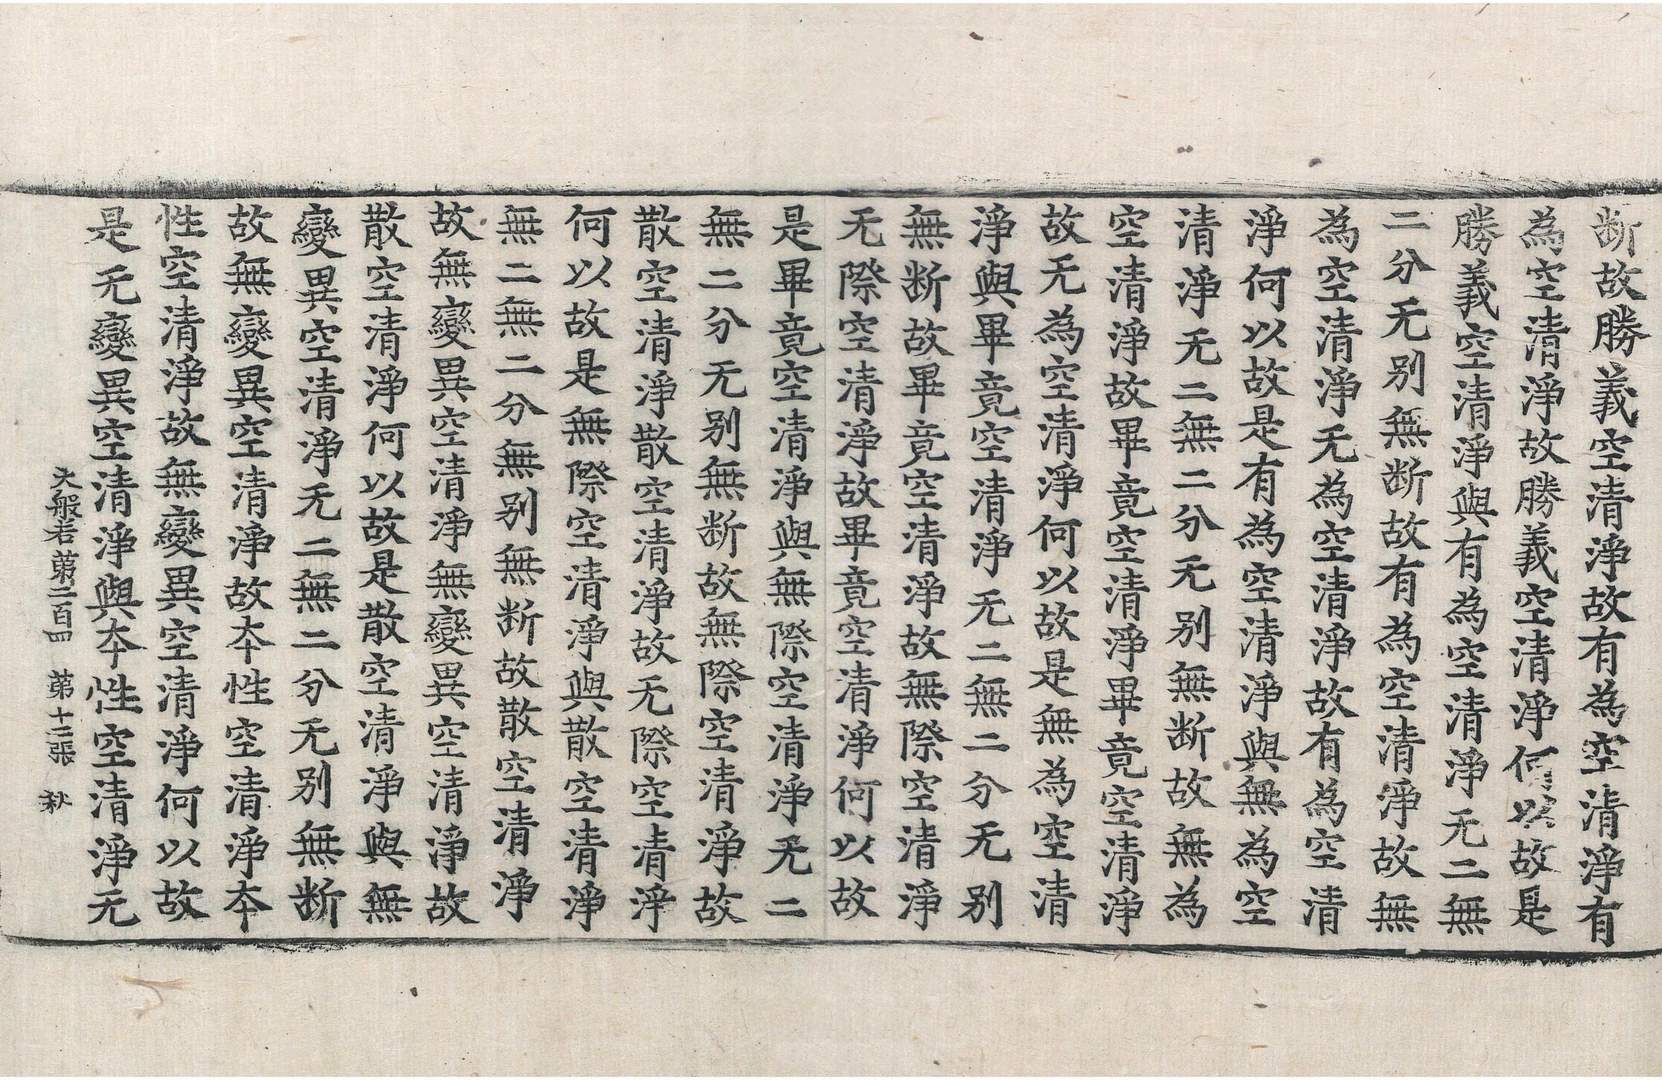 断故勝義空清淨故有為空清淨有
為空清淨故勝義空清淨何以故是
勝義空清淨與有為空清淨无二無
二分无别無断故有為空清淨故無
為空清淨无為空清淨故有為空清
淨何以故是有為空清淨與無為空
清淨无二無二分无别無断故無為
空清淨故畢竟空清淨畢竟空清淨
故无為空清淨何以故是無為空清
淨與畢竟空清淨无二無二分无别
無断故畢竟空清淨故無際空清淨
无際空清淨故畢竟空清淨何以故
是畢竟空清淨與無際空清淨无二
無二分无别無断故無際空清淨故
散空清淨散空清淨故无際空清淨
何以故是無際空清淨與散空清淨
無二無二分無别無断故散空清淨
故無變異空清淨無變異空清淨故
散空清淨何以故是散空清淨與無
變異空清淨无二無二分无别無断
故無變異空清淨故夲性空清淨夲
性空清淨故無變異空清淨何以故
是无變異空清淨與夲性空清淨无
大般若苐二百四 第十三張 秋